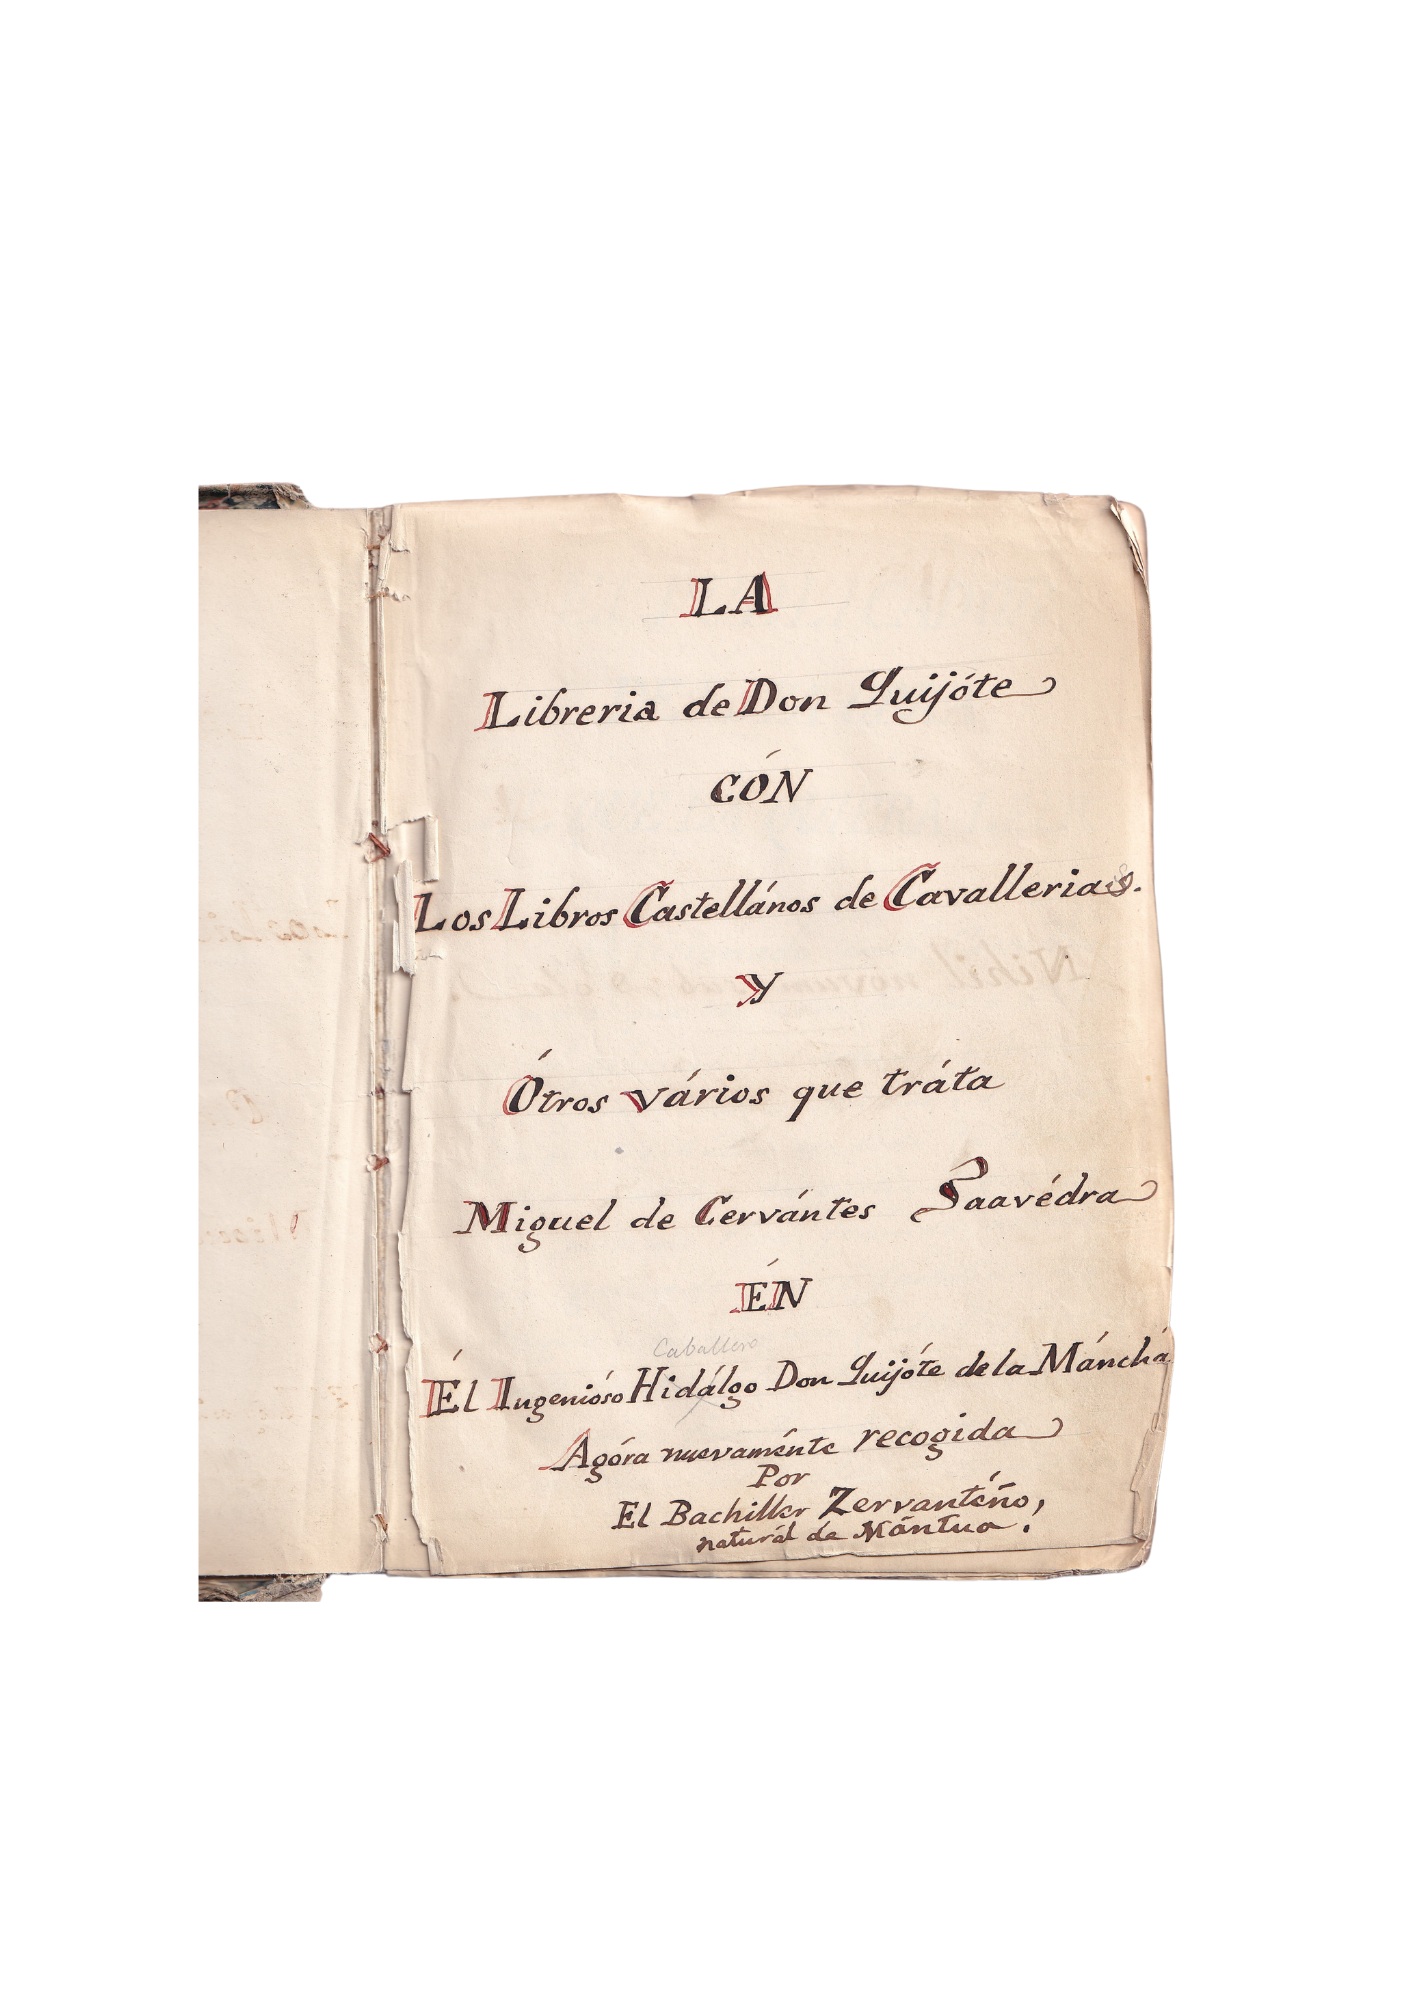 LA
Libreria de Don Quijóte
CÓN
Los Libros Castellános de Cavallerias.
Y
Ótros vários que tráta
Miguel de Cervántes Saavédra
ÉN
Caballero
Él Ingenióso Hidálgo Don Quijóte de la Máncha
Agóra nuevaménte recogida
Por
El Bachiller Zervantéño,
naturál de Mántua.
Nihil novum